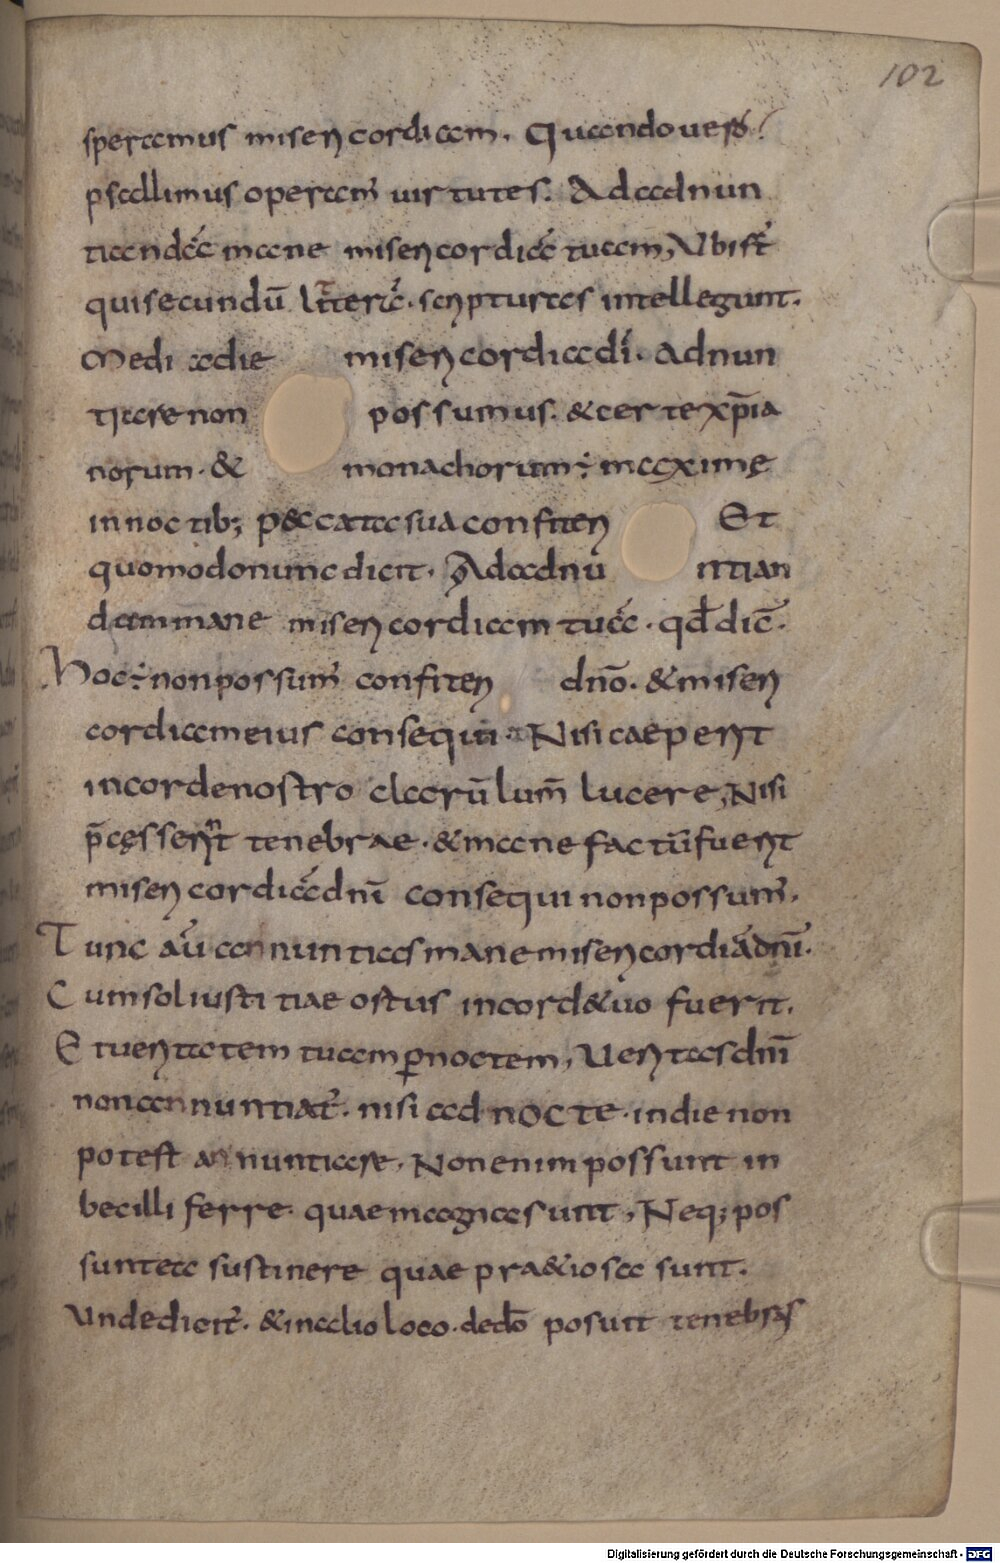 102
speramus misericordiam. Quando uero
psallimus operam̄ uirtutes. Ad adnun
tiandā mane misericordiā tuam, Vbi st̄
qui secundū littera. scripturas intellegunt.
Medi a die misericordia dī. adnun
tiare non possumus. & certe xp̄ia
norum. & monachorum ÷ maxime
in noctib; peccata sua confiteri Et
quomodo nunc dicit. Ad adnū ntian
dam mane misericordiam tuā. qd̄ dic̄.
Hoc ÷ non possum̄ confiteri dn̄o. & miseri
cordiam eius consequi. Nisi caeperit
in corde nostro clarū lum̄ lucere, Nisi
p̄cęsserīt tenebrae. & mane factū fuerit
misericordiā dnī consequi non possum̄.
Tunc aū annuntias mane misericordiā dnī.
Cum sol iustitiae ostus in cord& uo fuerit.
Et ueritatem tuam ꝑ noctem, Ueritas dnī
non annuntiat̄. nisi ad nocte. in die non
potest annuntiare. Non enim possunt in
becilli ferre. quae magna sunt, Neq; pos
sunt ea sustinere quae pra&iosa sunt.
Vnde dicit̄. & in alio loco. de dō posuit tenebras
Digitalisierung gefördert durch die Deutsche Forschungsgemeinschaft - DFG